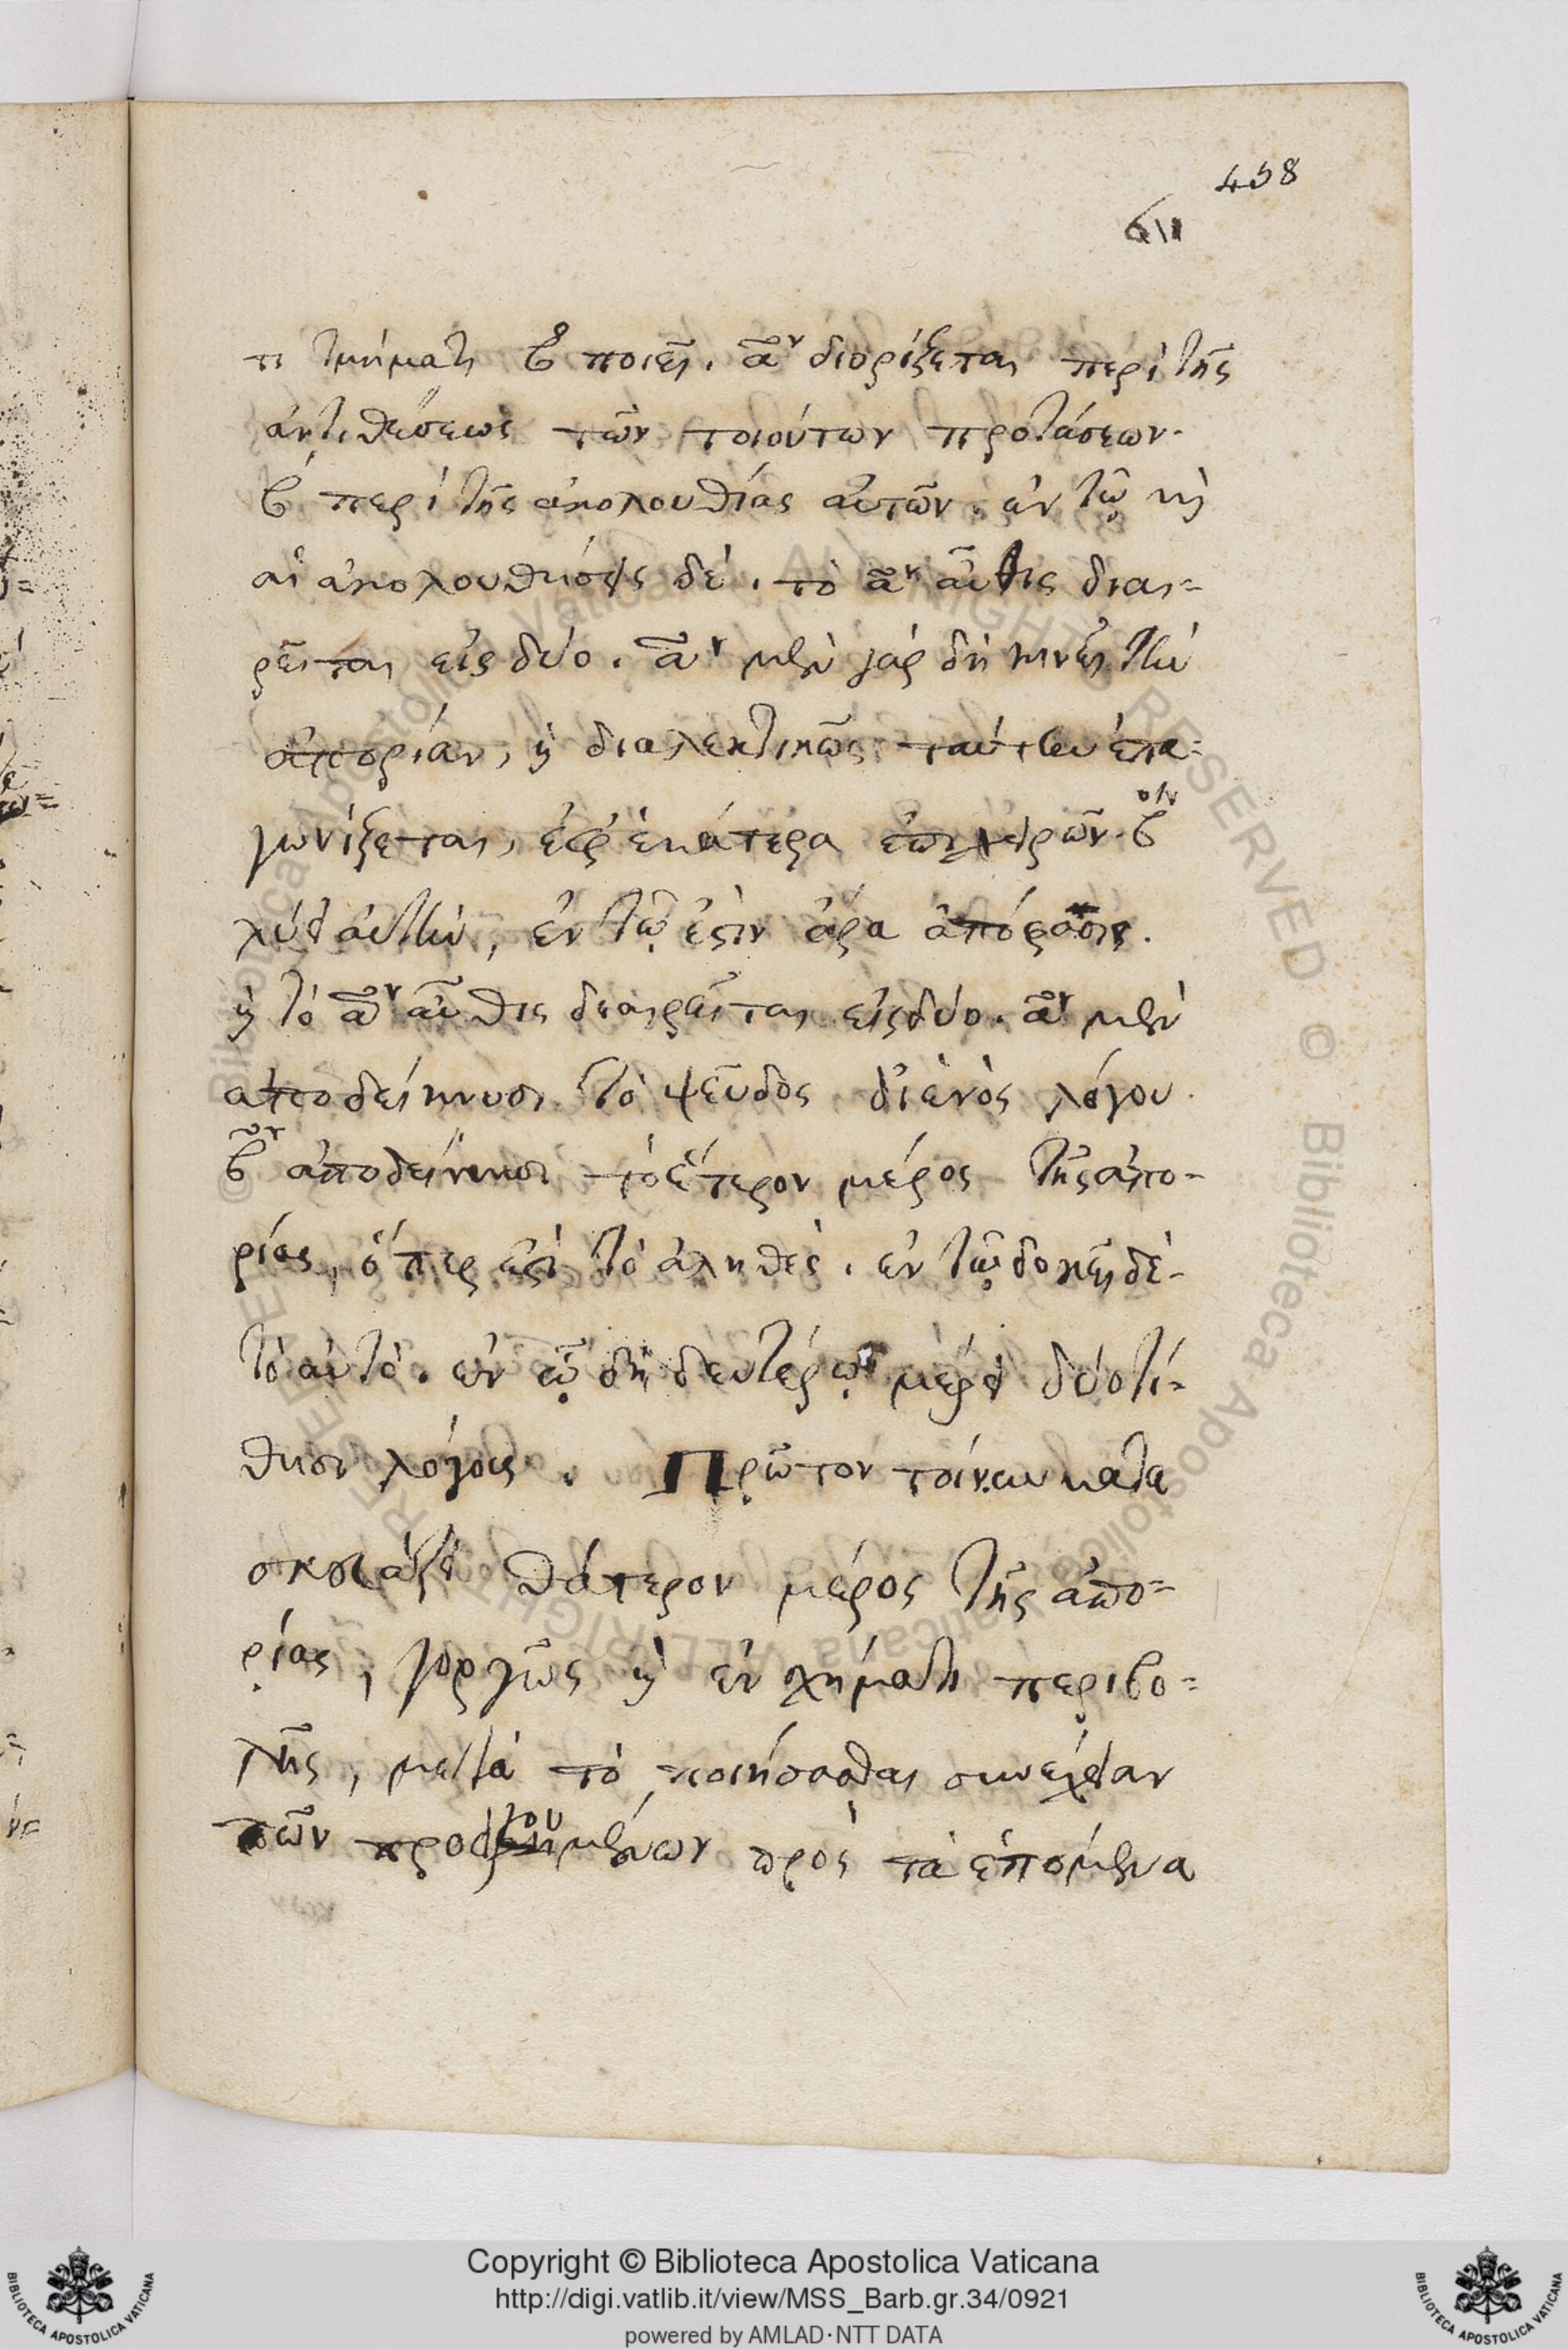 458
611
τι τμήματι β ποιεῖ. αον διορίζεται περὶ τῆς
ἀντιθέσεως τῶν τοιούτων προτάσεων.
β περὶ τῆς ἀκολουθίας αὐτῶν. ἐν τῷ καὶ
αἱ ἀκολουθήσεις δέ. τὸ αον αὖθις διαι=
ρεῖται εἰς δύο. αον μὲν γὰρ δὴ κινεῖ τὴν
ἀπορίαν, καὶ διαλεκτικῶς ταύτην ἐπα=
γωνίζεται, ἐφ' ἑκάτερα ἐπιχειρῶν. βον
λύει αὐτὴν, ἐν τῷ ἔστιν ἄρα ἀπόφασις.
καὶ τὸ αον αὖθις διαιρεῖται εἰς δύο. αον μὲν
ἀποδείκνυσι τὸ ψεῦδος δι' ἑνὸς λόγου.
βον ἀποδείκνυσι τὸ ἕτερον μέρος τῆς ἀπο=
ρίας, ὅπερ ἐστὶ τὸ ἀληθὲς. ἐν τῷ δοκεῖ δὲ
τὸ αὐτὸ. ἐν ᾧ δὴ δευτέρῳ μέρει δύο τί=
θησι λόγους. Πρῶτον τοίνυν κατα
σκευάζει θάτερον μέρος τῆς ἀπο=
ρίας, γοργῶς καὶ ἐν σχήματι περιβο=
λῆς, μετὰ τὸ ποιήσασθαι συνέχειαν
τῶν πρὸς τὰ ἑπόμενα
Copyright © Biblioteca Apostolica Vaticana
http://digi.vatlib.it/view/MSS_Barb.gr.34/0921
powered by AMLAD·NTT DATA